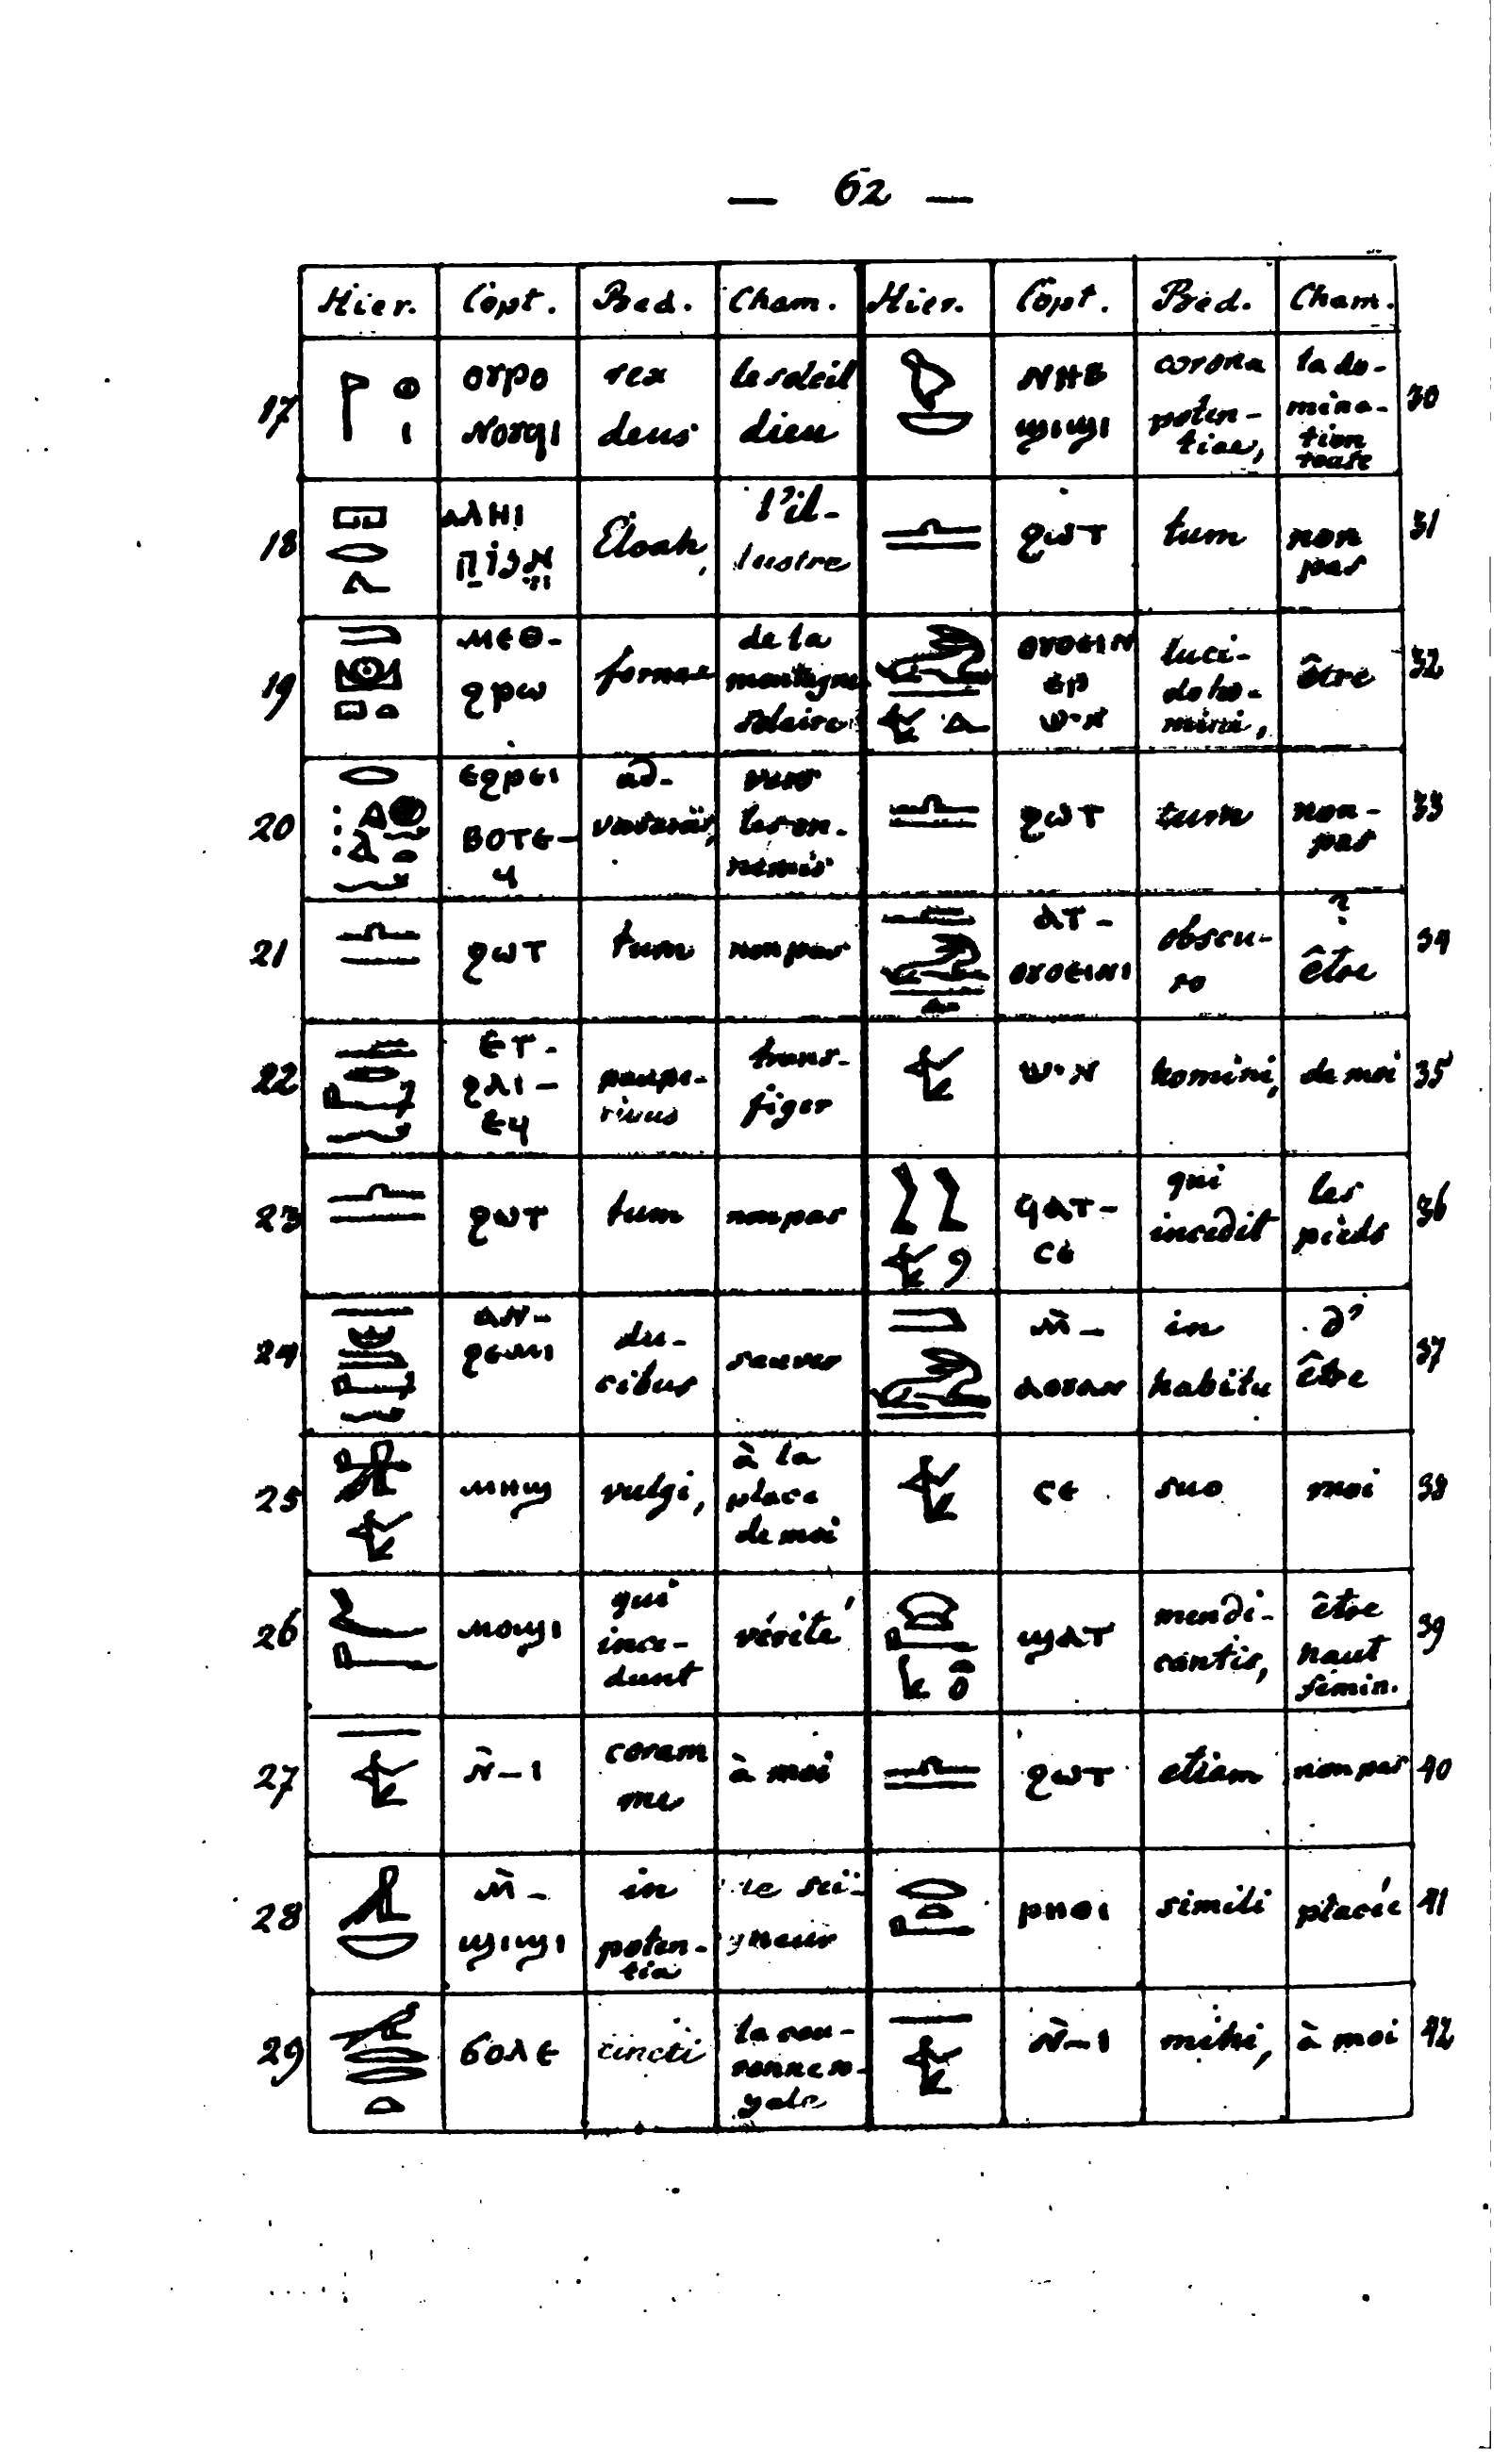 — 62 —
Hier. Copt. Bed. Cham. Hier. Copt. Bed. Cham.
17 ⲟⲩⲣⲟ ⲛⲟⲩϥⲓ rex deus le soleil dieu
ⲛⲏⲃ ϣⲓϣⲓ corona poten- tiae, la do- mina- tion toute 30
18 ⲁⲗⲏⲓ Eloah, l'il- lustre
ϩⲱⲧ tum non pas 31
19 ⲙⲉⲑ- ϩⲣⲱ formae de la montagne solaire
ⲟⲩⲟⲉⲓⲛ איש luci- do ho- mini, être 32
20 ⲉϩⲣⲉⲓ ⲃⲟⲧⲉ- ϥ ad- vers les en- nemis
ϩⲱⲧ tum non- pas 33
21 ϩⲱⲧ tum non pas
ⲁⲧ- ⲟⲩⲟⲉⲓⲛⲓ obscu- ro ? être 34
22 ⲉⲧ- ϩⲗⲓ- ⲉϥ paupe- ribus trans- figer
איש homini, de moi 35
23 ϩⲱⲧ tum non pas
ϭⲁⲧ- ⲥⲉ qui incedit les pieds 36
24 ⲁⲛ- ϩⲉⲙⲓ du- cibus sauver
ⲙ̄- ⲁⲟⲩⲁⲛ in habitu d' être 37
25 ⲙⲏϣ vulgi, à la place de moi
ⲥⲉ suo moi 38
26 ⲙⲟϣⲓ qui ince- dunt vérité
ϣⲁⲧ mendi- cantis, être haut fémin. 39
27 ⲛ̄-ⲓ coram me à moi
ϩⲱⲧ etiam non pas 40
28 ⲙ̄- ϣⲓϣⲓ in poten- tia le sei- gneur
ⲣⲏⲟⲓ simili placée 41
29 ϭⲟⲗⲉ cincti la cou- ronne ro- yale
ⲛ̄-ⲓ mihi, à moi 42